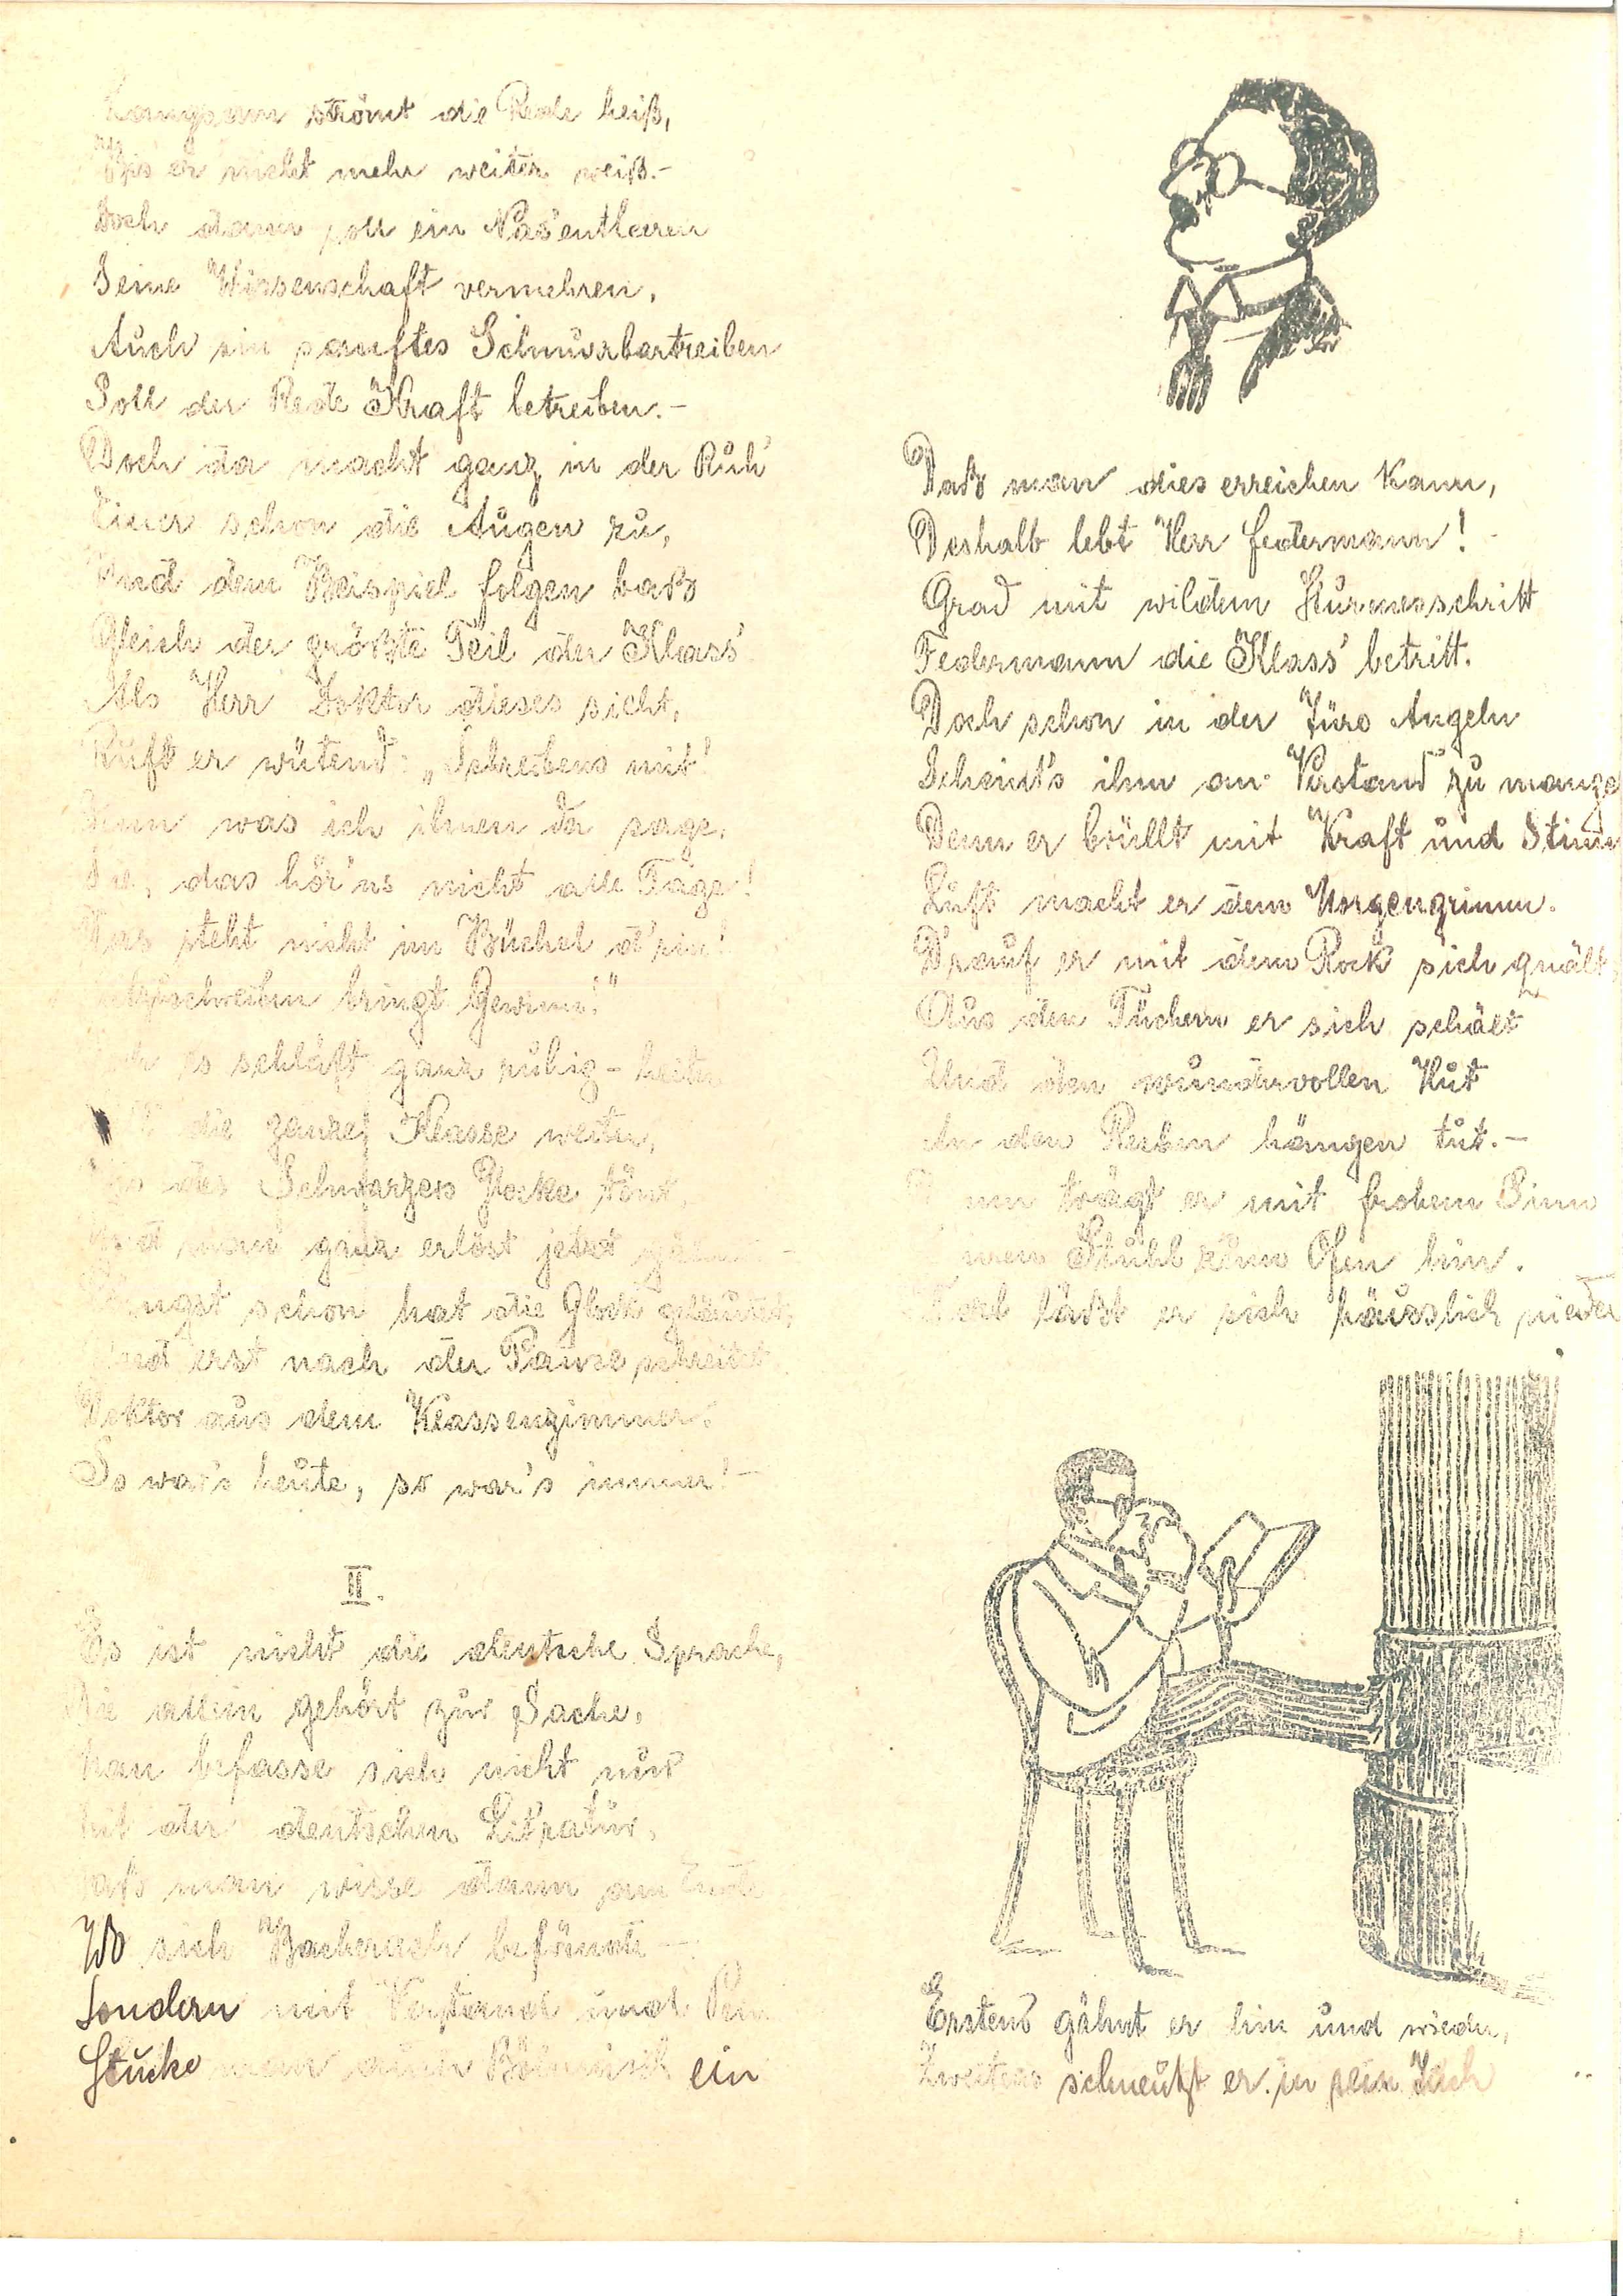 Langsam strömt die Rede heiß,
Bis er nicht mehr weiter weiß.-
Doch dann soll ein Nas'entleeren
Seine Wissenschaft vermehren,
Auch ein sanftes Schnurrbartreiben
Soll der Rede Kraft betreiben.-
Doch da macht ganz in der Ruh'
Einer schon die Augen zu,
Und dem Beispiel folgen baß
Gleich der größte Teil der Klass'
Als Herr Doktor dieses sieht,
Ruft er wütend: „Schreibens mit!
Denn was ich ihnen da sage,
Sie, das hör'ns nicht alle Tage!
Das steht nicht im Büchel d'rin!
bringt Gewinn!"
Doch es schläft ganz ruhig-heiter
die ganze Klasse weiter,
Bis des Schwarzen Glocke tönt,
Und man ganz erlöst jetzt gähnt -
Längst schon hat die Glock' geläutet,
Und erst nach der Pause schreitet
Doktor aus dem Klassenzimmer.
So war's heute, so war's immer!-
II.
Es ist nicht die deutsche Sprache,
Die allein gehört zur Sache,
Man befasse sich nicht nur
Mit der deutschen Lit'ratur,
Daß man wisse dann am Ende
Wo sich Bacherach befände -
Sondern mit Verstand und Pein
Stucke man auch Böhmisch ein
Daß man dies erreichen kann,
Deshalb lebt Herr Federmann!
Grad mit wildem Sturmesschritt
Federmann die Klass' betritt.
Doch schon in der Türe Angeln
Scheint's ihm an Verstand zu mange
Denn er brüllt mit Kraft und Stimm
Luft macht er dem Morgengrimm.
D'rauf er mit dem Rock sich quält
Aus den Tüchern er sich schält
Und den wundervollen Hut
An den Rechen hängen tut.-
Dann trägt er mit frohem Sinn
Stuhl zum Ofen hin.
läßt er sich häuslich nieder
Erstens gähnt er hin und wieder,
Zweitens schneutzt er in sein Tüch